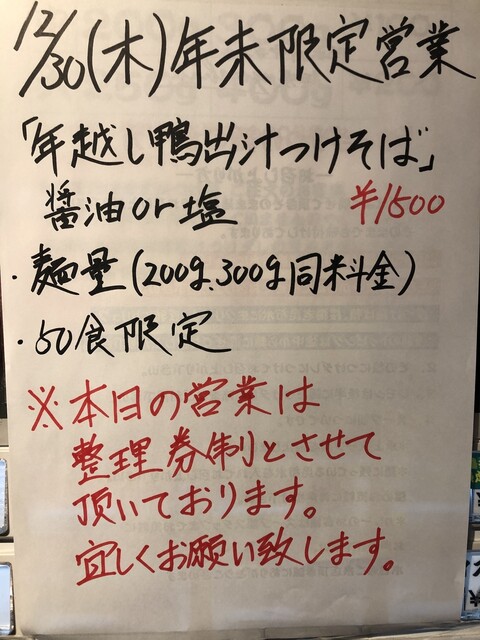 12/30(木)年末限定営業
「年越し鴨出汁つけそば」
醤油or塩 ¥1500
・麺量(200g、300g同料金)
・50食限定
※本日の営業は
整理券制とさせて
頂いております。
宜しくお願い致します。